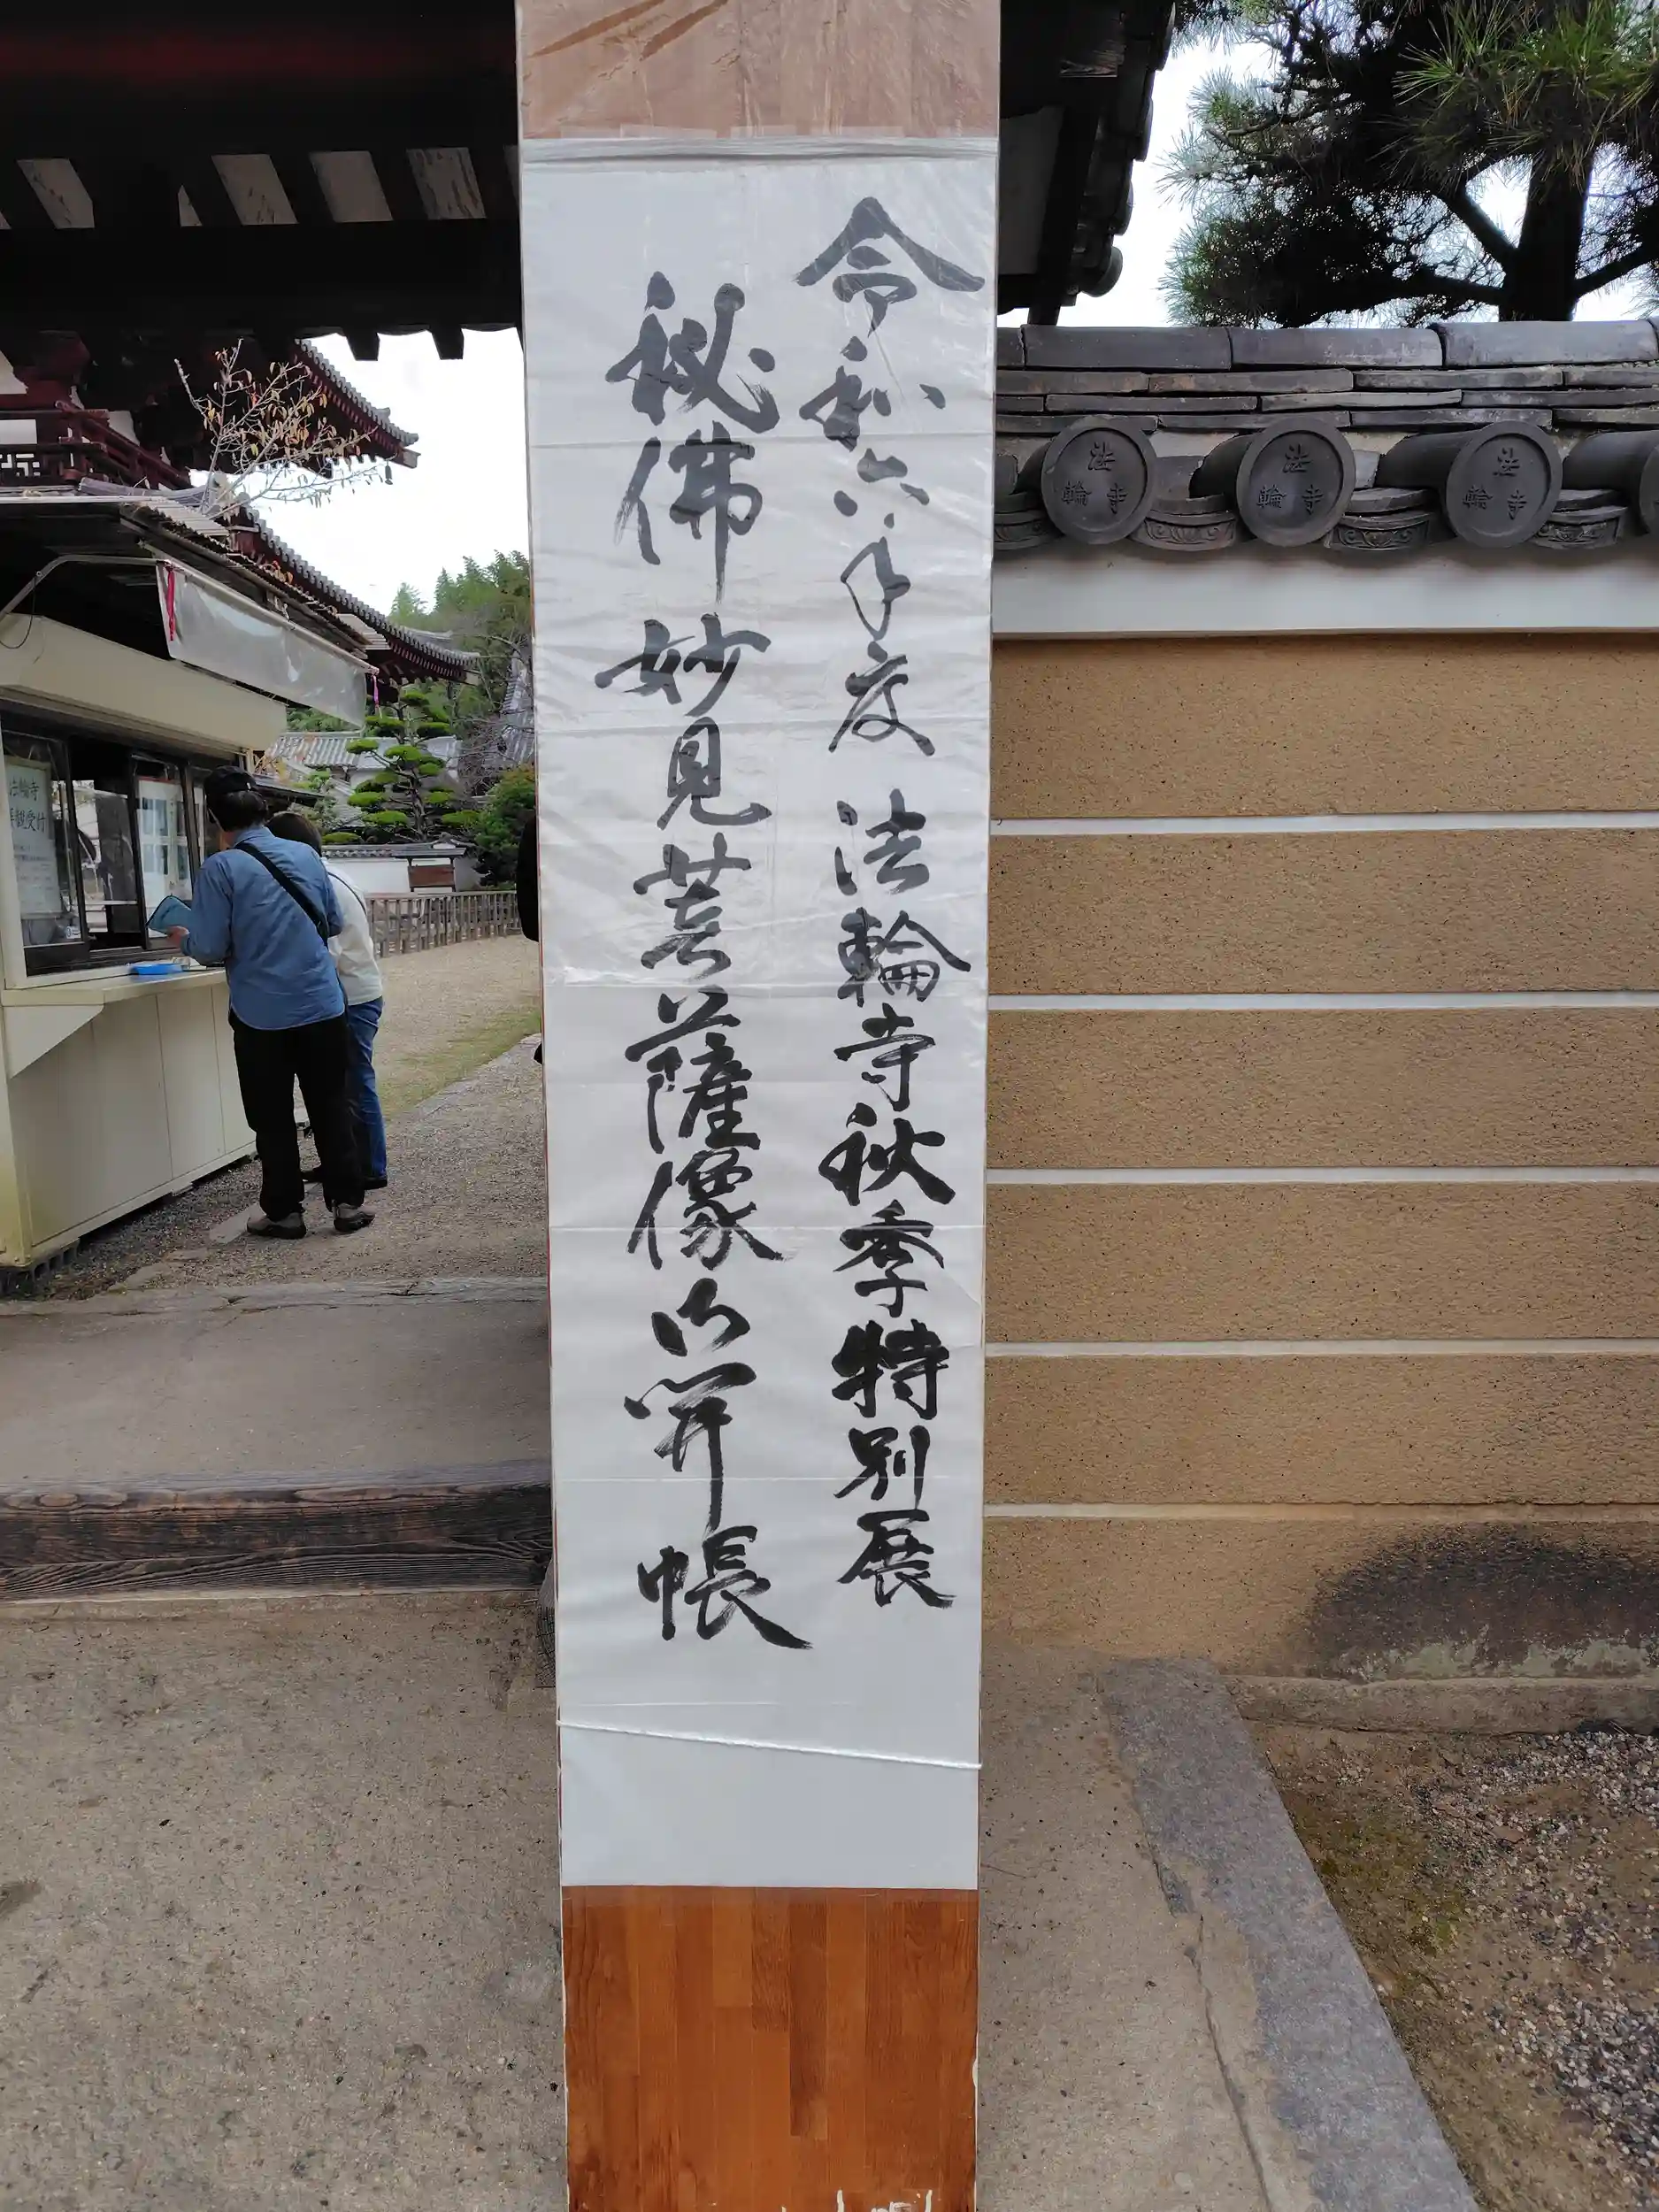 令和六年度 法輪寺秋季特別展
秘佛 妙見菩薩像 御開帳
法輪寺
法輪寺
法輪寺
法輪寺
拝観受付